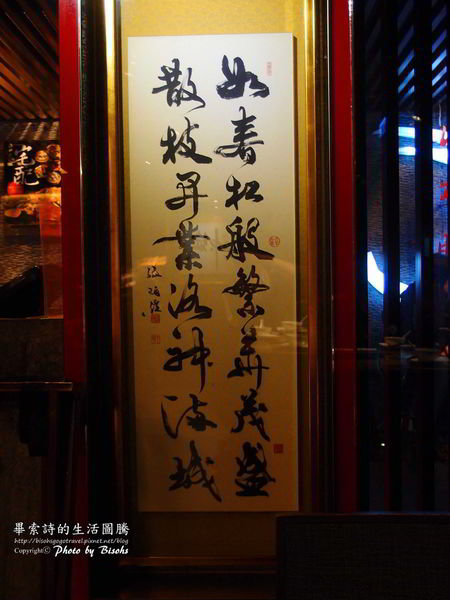 如春松般繁華茂盛
散枝業洛神滿城
宅配
畢索詩的生活圖騰
http://bisohsgogotravel.pixnet.net/blog
Copyright© Photo by Bisohs